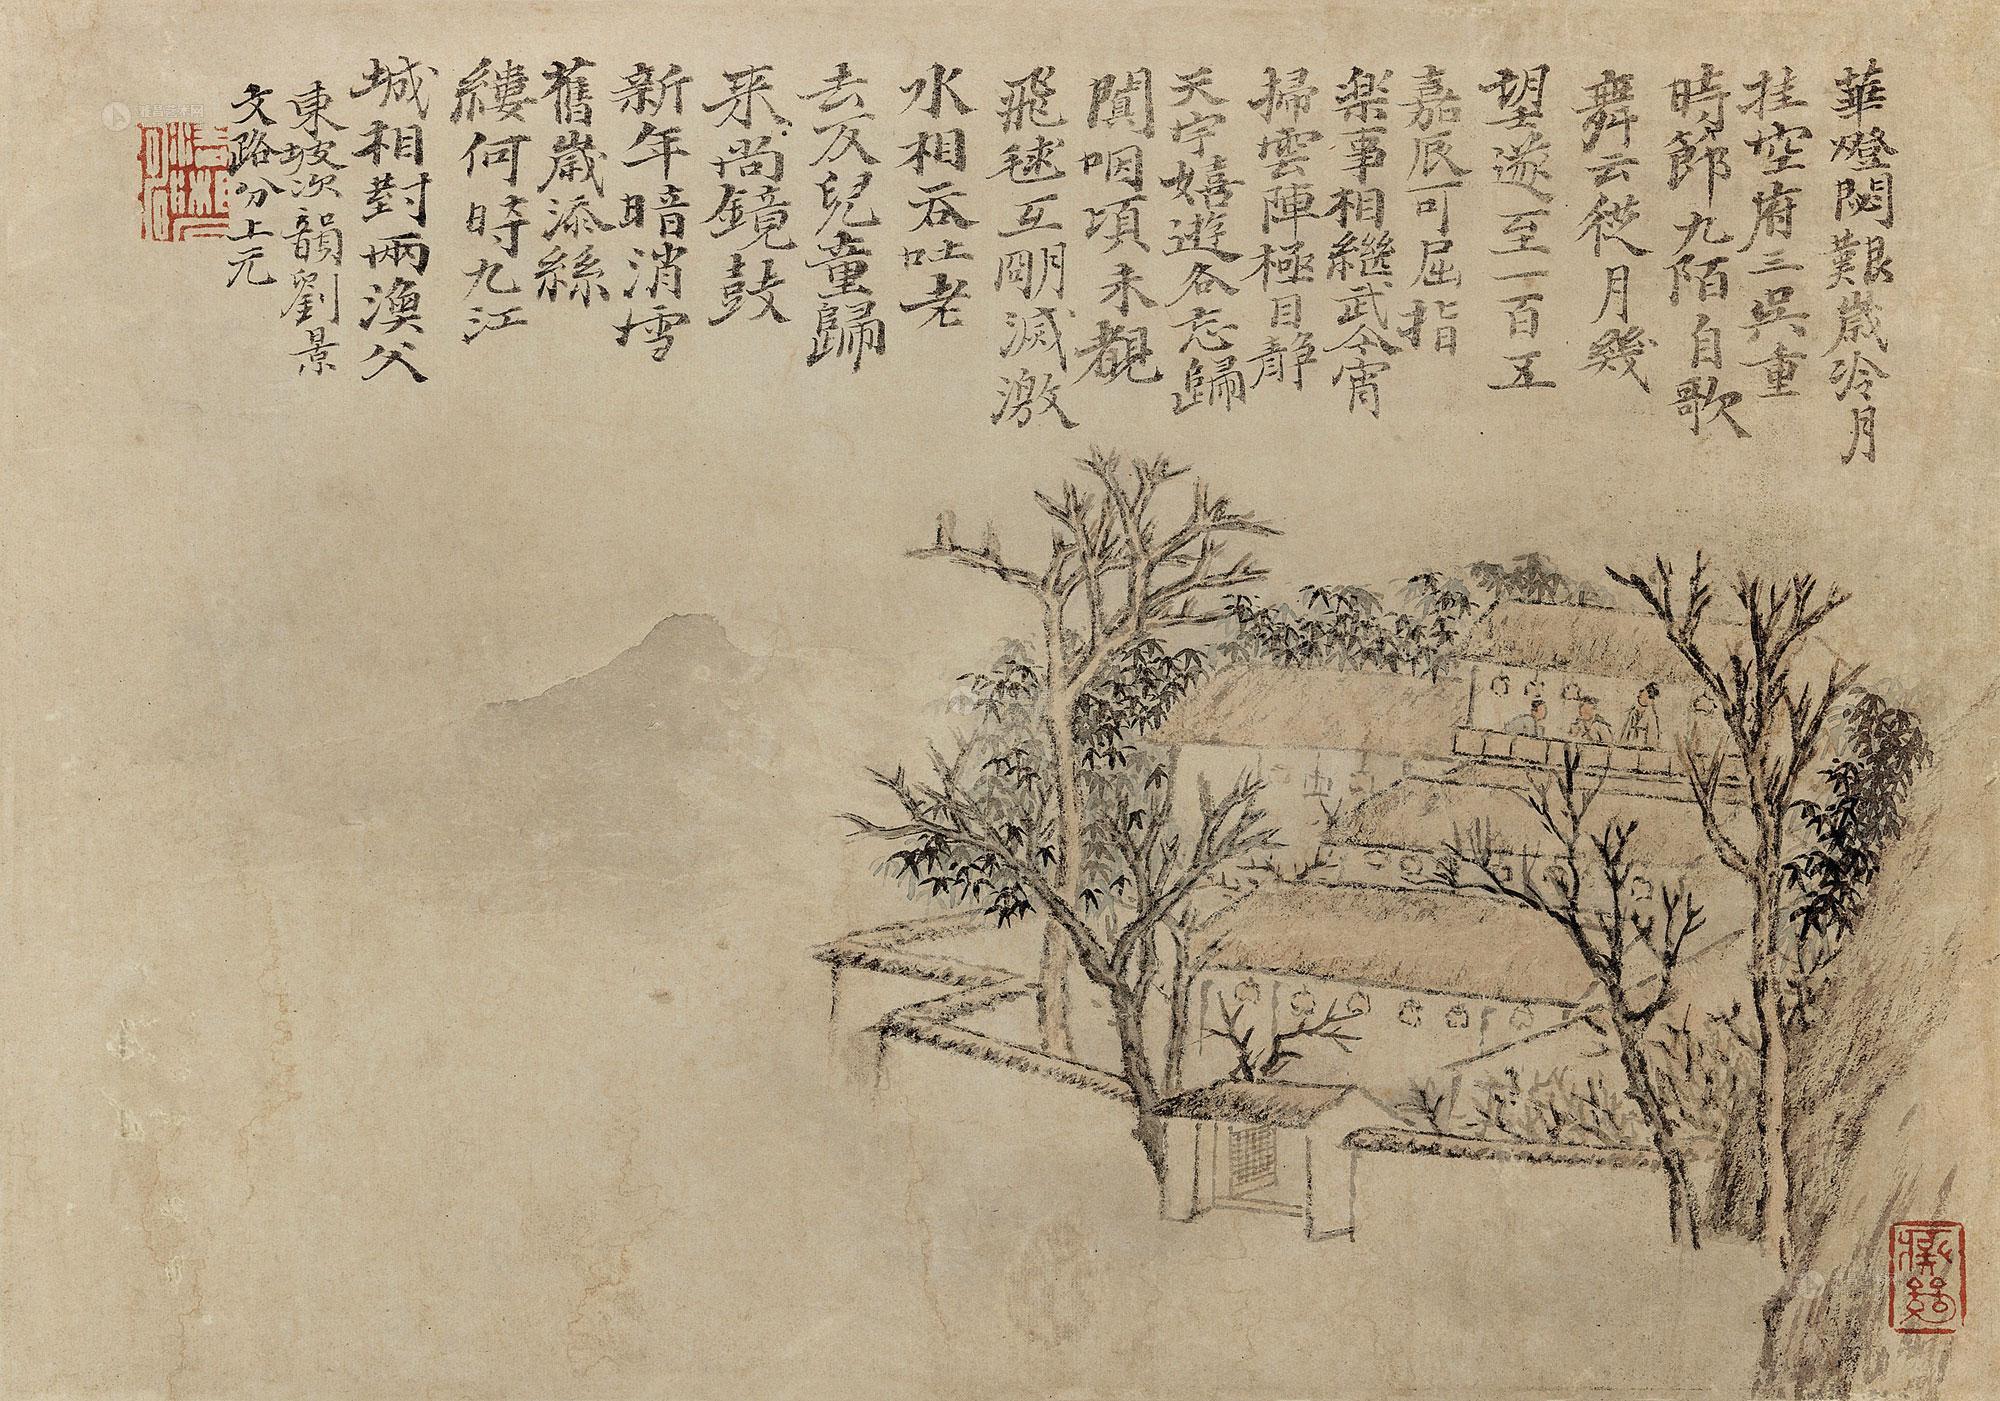 華燈閟艱歲冷月
挂空府三吳重
時節九陌自歌
舞云從月幾
望遂至一百五
嘉辰可屈指
樂事相繼武今宵
掃雲陣極目靜
天宇嬉遊各忘歸
闐咽頃未覩
飛毬互明滅激
水相吞吐老
去反兒童歸
來尚鏡鼓
新年暗消雪
舊歲添絲
縷何時九江
城相對兩漁父
東坡次韻劉景
文路分上元